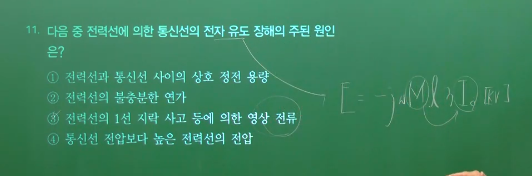 11. 다음 중 전력선에 의한 통신선의 전자 유도 장해의 주된 원인
은?
① 전력선과 통신선 사이의 상호 정전 용량
② 전력선의 불충분한 연가
③ 전력선의 1선 지락 사고 등에 의한 영상 전류
④ 통신선 전압보다 높은 전력선의 전압
E = -jωMl 3I₀ [V]